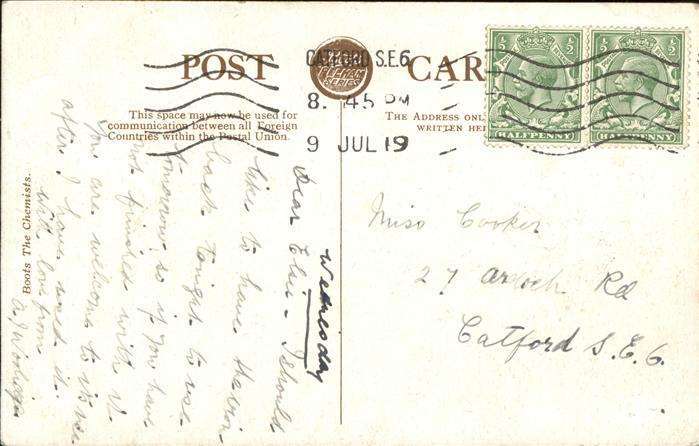 POST
CARD
CATFORD S.E.6
8. 45 PM
9 JUL 19
PELHAM
SERIES
This space may now be used for
communication between all Foreign
Countries within the Postal Union.
THE ADDRESS ONL
WRITTEN HE
HALFPENNY
HALFPENNY
Boots The Chemists.
Wednesday
Dear Elsie - I should
like to have
back tonight to use
tomorrow so if you have
not finished with it
you are welcome to it
after I have used it.
with love from
Miss Cooker
27 Rd
Catford S.E.6.